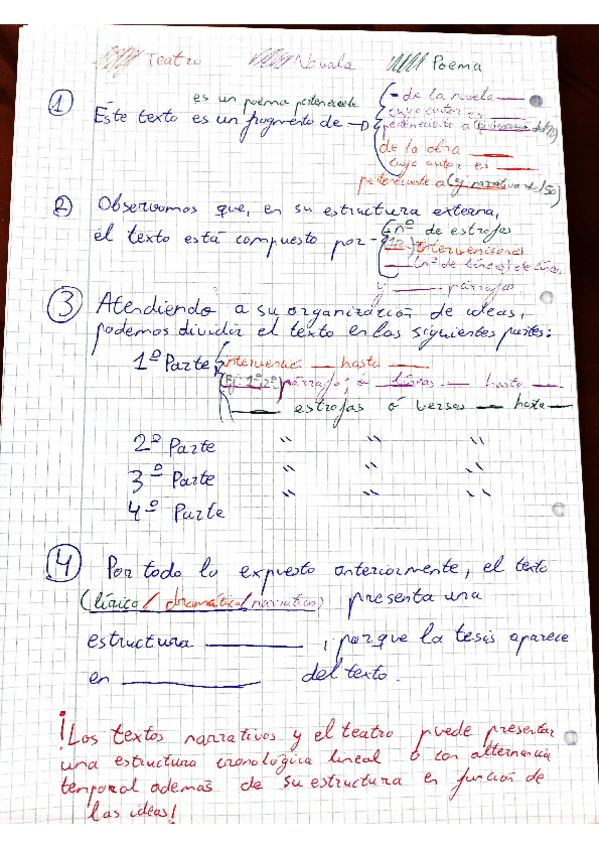 Teatro Novela Poema
① es un poema perteneciente
Este texto es un fragmento de → - de la novela ___
cuyo autor es ___
perteneciente a
de la obra ___
cuyo autor es ___
perteneciente a (ej narrativa del 50)
② Observamos que, en su estructura externa,
el texto está compuesto por - nº de estrofas
intervenciones
___ (nº de líneas) de líneas
y ___ párrafos
③ Atendiendo a su organización de ideas,
podemos dividir el texto en las siguientes partes:
1º Parte intervenció ___ hasta ___
(Ej: 1º 2º) párrafo; o líneas ___ hasta ___
___ estrofas ó versos ___ hasta ___
2º Parte " " "
3º Parte " " "
4º Parte " " "
④ Por todo lo expuesto anteriormente, el texto
(lírico / dramático / narrativo) presenta una
estructura ___ , porque la tesis aparece
en ___ del texto.
¡Los textos narrativos y el teatro puede presentar
una estructura cronológica lineal o con alternancia
temporal además de su estructura en función de
las ideas!